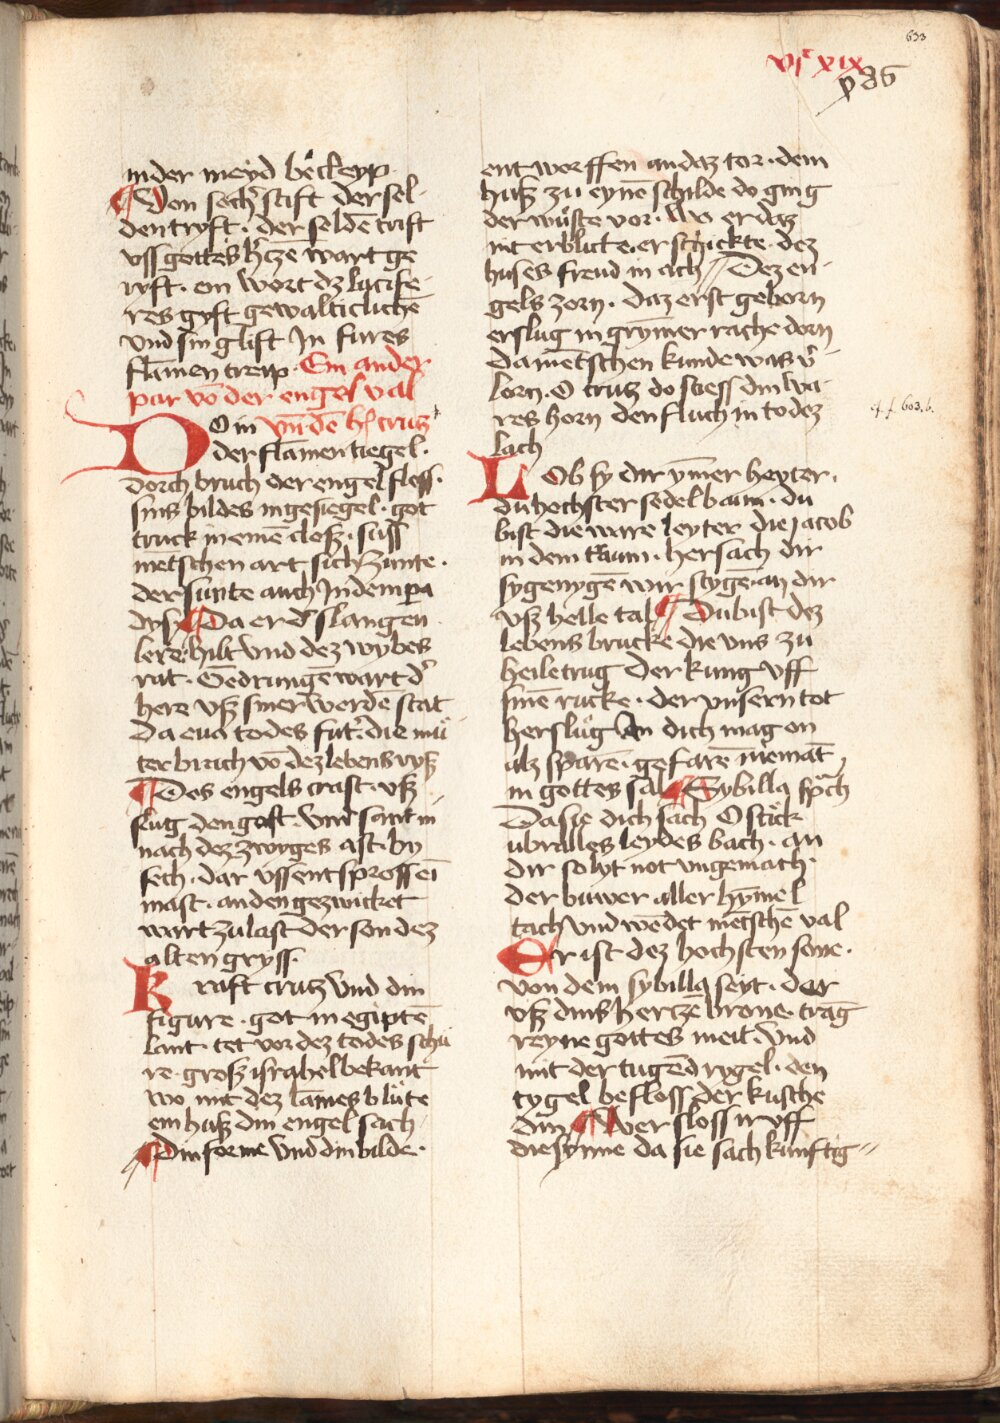 633
vjc xix
in der meyd becleyp
¶ Den sech' stift der sel-
den tryft · der seldē trift
vss gottes h'czē wart ge
ryft · ein wort dz lucife-
res gyft gewalticlichē
vnd sin glift In fures
flāmen treyp · Ein ander
par vō der engel val
DOin vn̄ dē h' crucz
der flāmen tiegel ·
dorch bruch der engel fless ·
sins bildes ingesiegel · got
truck in eme closz · suss
mētschen art sich zunte ·
der sunte auch In dem pa
dysz ¶ Da er d' slangen
lere hilt vnd dez wybes
rat · Gedrungē wart d'
here vsz siner werdē stat
da eua todes fut' · die mu
ter brach vō dez lebens rysz
¶ Des engels crast · vsz
slug · den gast · vnd sant in
nach dez zwyges ast · by
sech · dar vss entsprossē ī
mast · an den gezwicket
wart zu last der son dez
alten gryss
Kraft crucz vnd din
figure · got in egiptē
lant · tet vor dez todes schu
re · grosz israhel bekant
wo mit dez lāmes blute
ein husz din engel sach ·
¶ Din forme vnd din bilde ·
entworffen an daz tor · dem
husz zu eynē schilde do ging
der wuste vor · Wo er daz
nit erblicte · er schickte dez
huses freud in ach // Dez en-
gels zorn · daz erst geborn
erslug in grymer rache dorn
da mētschen kunde was v'
lorn · O crucz do stiess din wa-
res horn den fluch in todez
lach
cf. f. 603. b.
LOb sy dir ymer heyter ·
du hochster sedel baum · du
bist die ware leyter die jacob
in dem traum · her sach dir
sygenygē wir stygē an dir
vsz helle tal ¶ Du bist dez
lebens brucke die vns zu
heile trug Der kung vff
sinē rucke · der vnsern tot
herslug An dich mag on
alz sparē · gefarē niemāt
in gottes sal ¶ Sybilla sp̄ch
Da sie dich sach O stock
vbralles leydes bach · an
dir so lyt not vngemach ·
der buwer aller hȳmel
tach Vnd wēdet mētschē val
Er ist dez hochsten sone ·
von dem sybilla seyt · der
vsz dins hertzē krone · trag
reyne gottes meit · Vnd
mit der tugēd rygel · den
tygel befloss der kusche
din ¶ Wer sloss ir vff
die synne da sie sach kunftig //